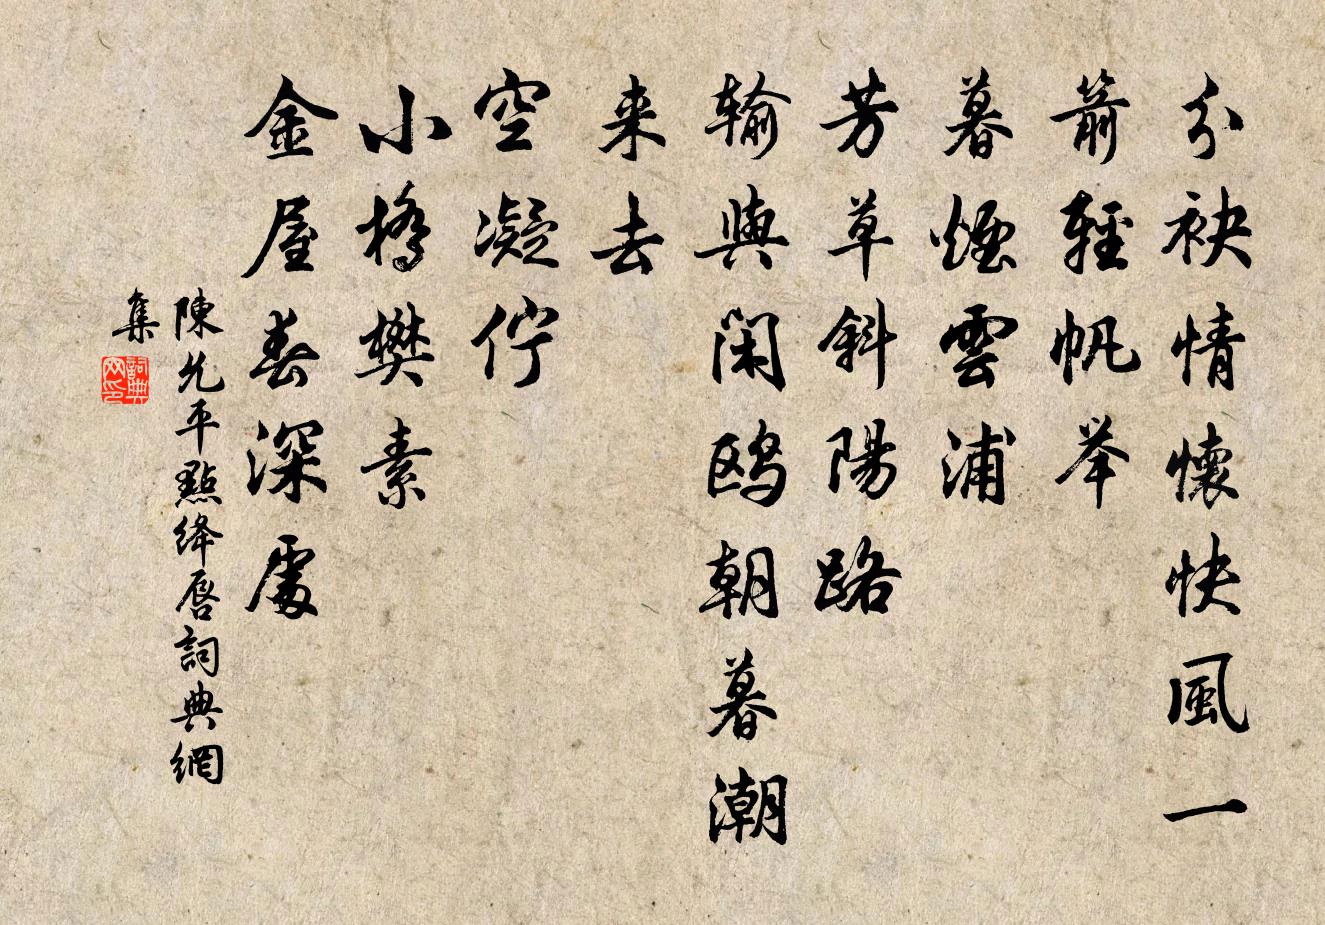 分袂情懷快風一
箭輕帆举
暮煙雲浦
芳草斜陽路
輸與閑鸥朝暮潮
来去
空凝佇
小橋樊素
金屋春深處
陳允平點绛唇詞典網
集
詞典
网印